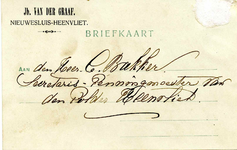 JB. VAN DER GRAAF.
NIEUWESLUIS-HEENVLIET.
BRIEFKAART
AAN den Heer C. Bakker.
Secretaris-Penningmeester van
den Polder Heenvliet.